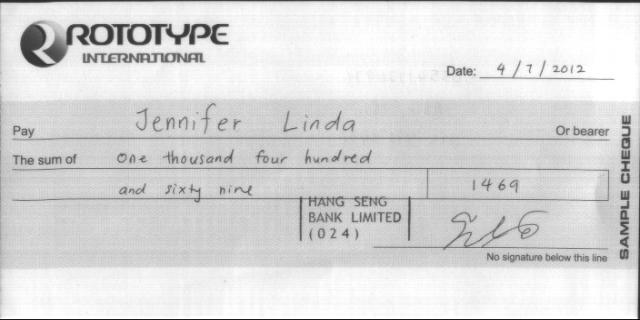 ROTOTYPE
INTERNATIONAL
Date: 4/7/2012
Pay Jennifer Linda Or bearer
The sum of One thousand four hundred
and sixty nine 1469
HANG SENG
BANK LIMITED
(024)
No signature below this line
SAMPLE CHEQUE